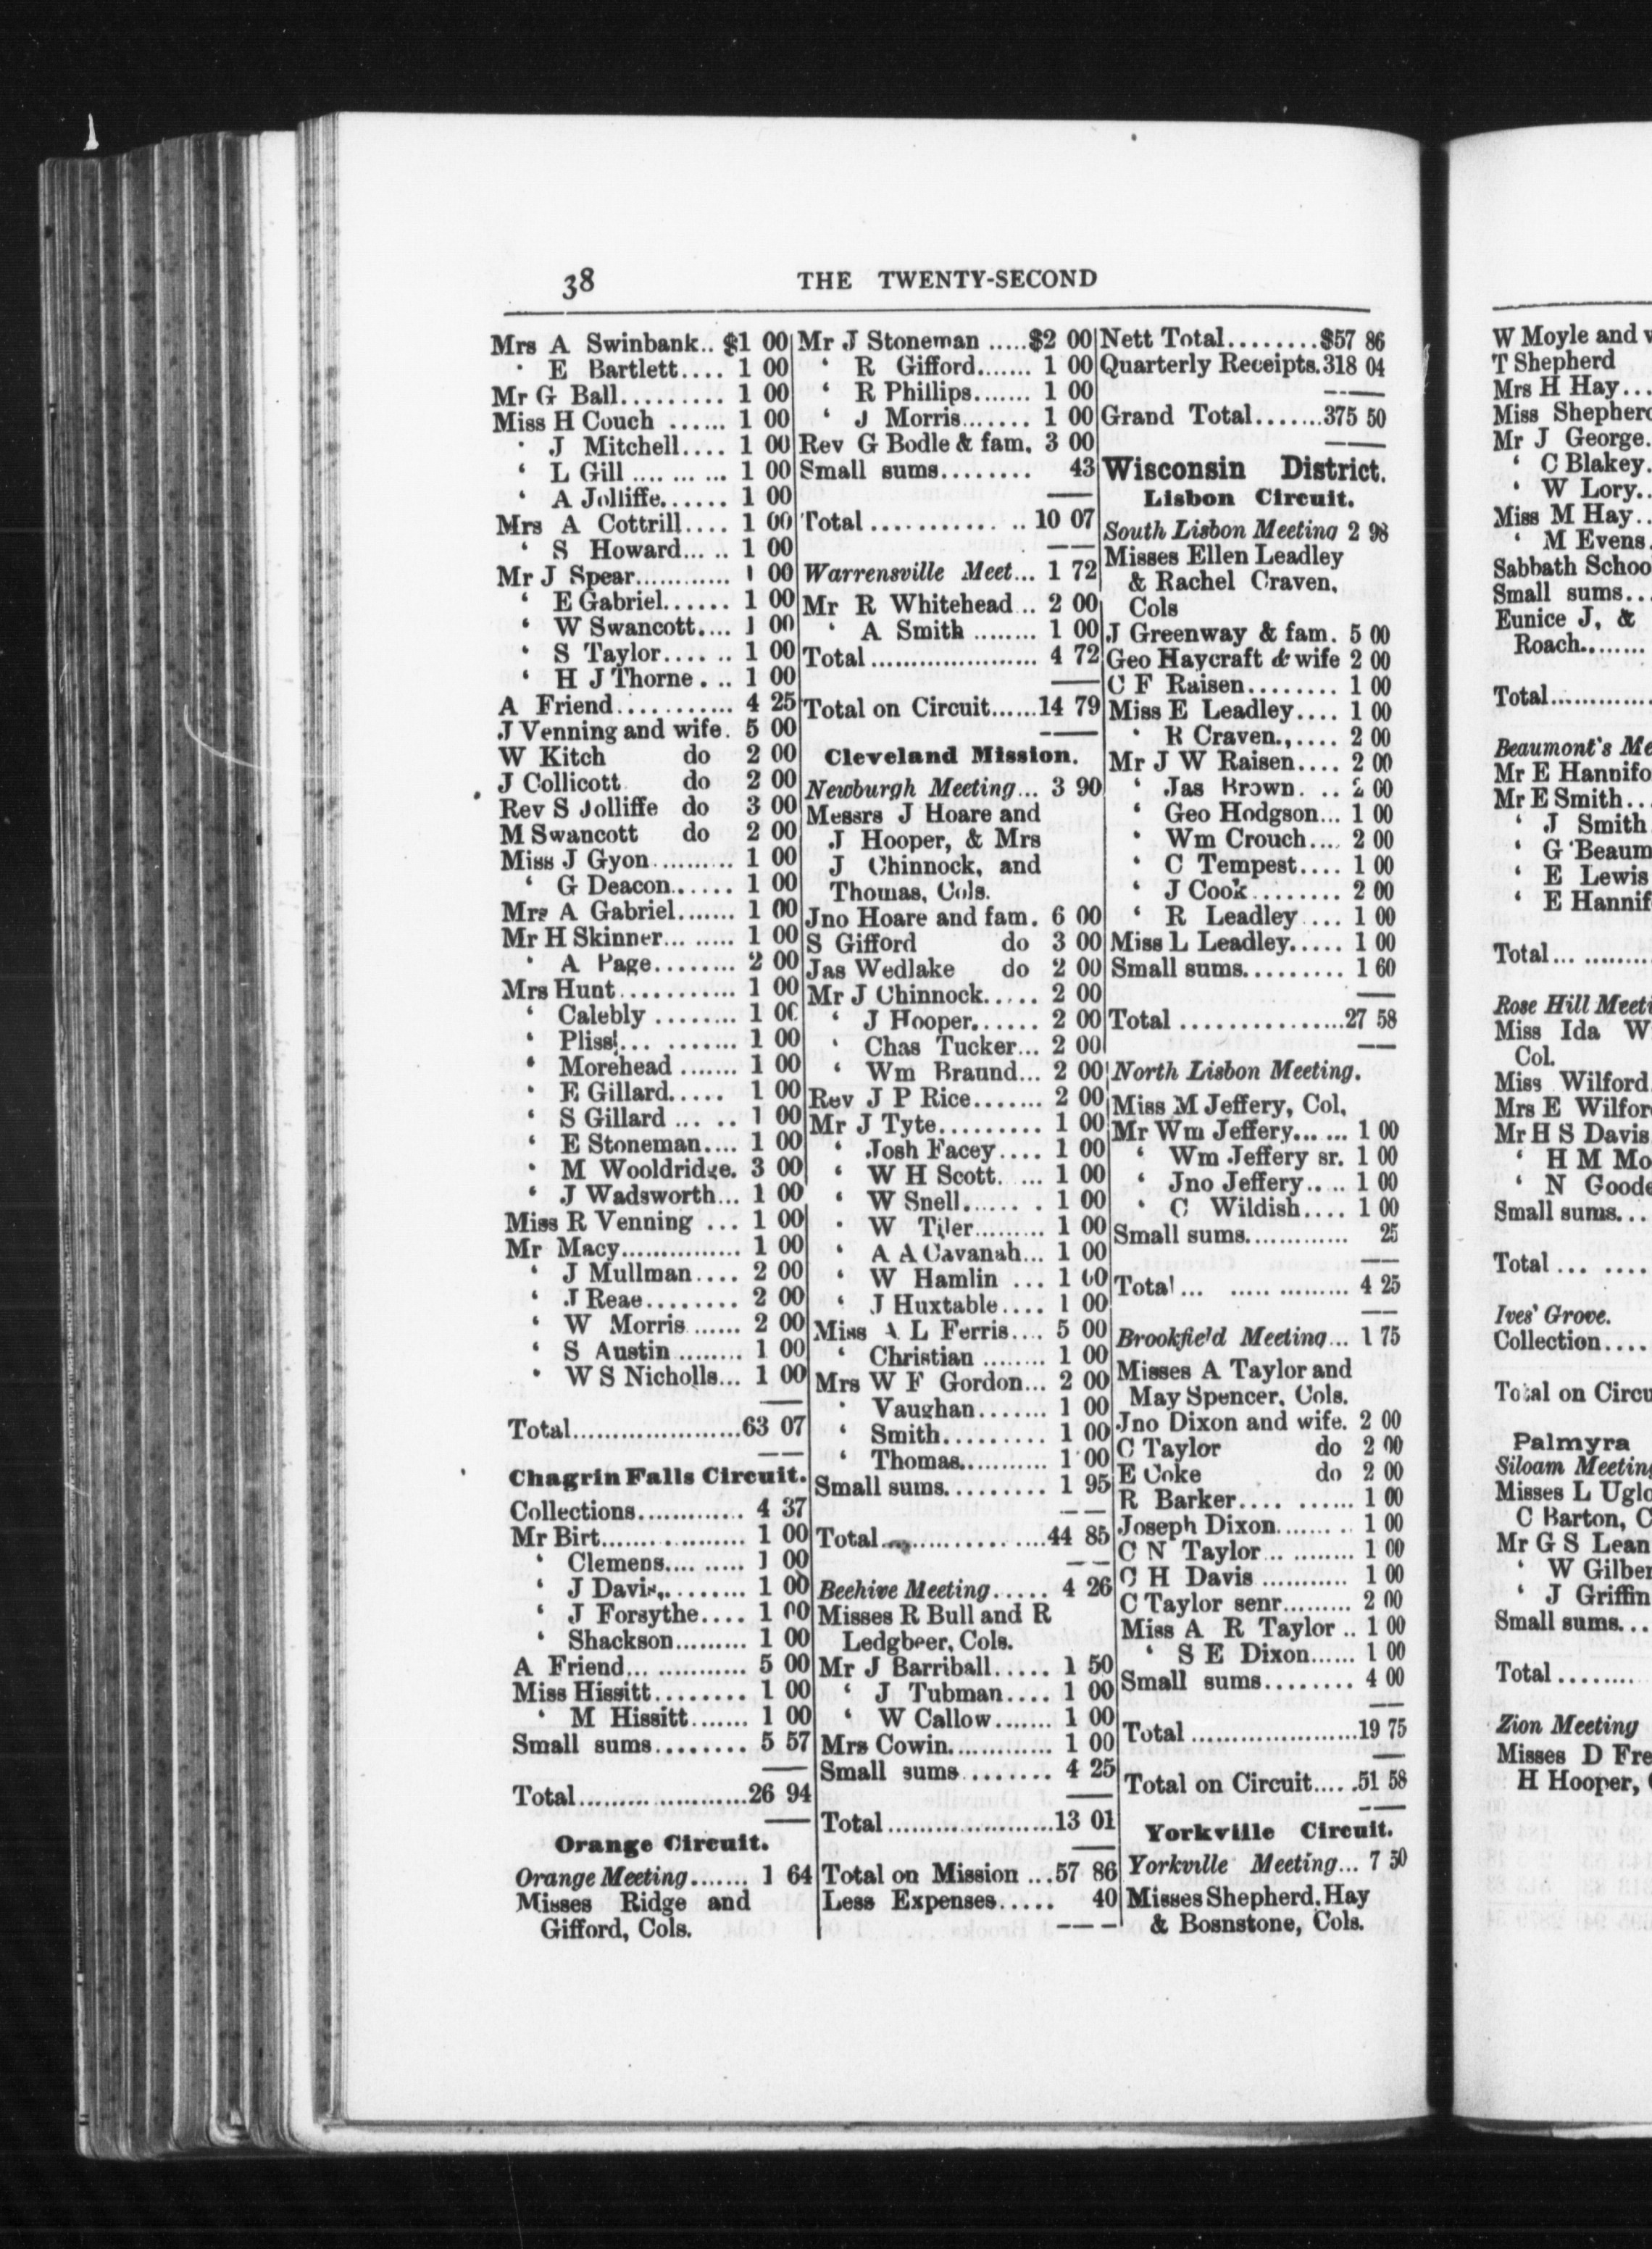 38
THE TWENTY-SECOND
Mrs A Swinbank.. $1 00
‘ E Bartlett.... 1 00
Mr G Ball.......... 1 00
Miss H Couch ...... 1 00
‘ J Mitchell.... 1 00
‘ L Gill .... ... ... 1 00
‘ A Jolliffe...... 1 00
Mrs A Cottrill.... 1 00
‘ S Howard... .. 1 00
Mr J Spear............ 1 00
‘ E Gabriel...... 1 00
‘ W Swancott.... 1 00
‘ S Taylor.... .. 1 00
‘ H J Thorne . .. 1 00
A Friend........... 4 25
J Venning and wife. 5 00
W Kitch do 2 00
J Collicott do 2 00
Rev S Jolliffe do 3 00
M Swancott do 2 00
Miss J Gyon.......... 1 00
‘ G Deacon...... 1 00
Mrs A Gabriel....... 1 00
Mr H Skinner... ..... 1 00
‘ A Page........ 2 00
Mrs Hunt............ 1 00
‘ Calebly ........ 1 00
‘ Pliss... ........ 1 00
‘ Morehead ....... 1 00
‘ E Gillard..... 1 00
‘ S Gillard ... .. 1 00
‘ E Stoneman.... 1 00
‘ M Wooldridge. 3 00
‘ J Wadsworth... 1 00
Miss R Venning ... 1 00
Mr Macy............... 1 00
‘ J Mullman.... 2 00
‘ J Reae........ 2 00
‘ W Morris ...... 2 00
‘ S Austin ........ 1 00
‘ W S Nicholls... 1 00
Total.....................63 07
Chagrin Falls Circuit.
Collections............ 4 37
Mr Birt................. 1 00
‘ Clemens.......... 1 00
‘ J Davis......... 1 00
‘ J Forsythe.... 1 00
‘ Shackson......... 1 00
A Friend... ............ 5 00
Miss Hissitt........ 1 00
‘ M Hissitt....... 1 00
Small sums........ 5 57
Total......................26 94
Orange Circuit.
Orange Meeting....... 1 64
Misses Ridge and
Gifford, Cols.
Mr J Stoneman .....$2 00
‘ R Gifford....... 1 00
‘ R Phillips....... 1 00
‘ J Morris....... 1 00
Rev G Bodle & fam. 3 00
Small sums........ 43
Total ........... . ..10 07
Warrensville Meet... 1 72
Mr R Whitehead.. 2 00
‘ A Smith ........ 1 00
Total..................... 4 72
Total on Circuit......14 79
Cleveland Mission.
Newburgh Meeting... 3 90
Messrs J Hoare and
J Hooper, & Mrs
J Chinnock, and
Thomas, Cols.
Jno Hoare and fam. 6 00
S Gifford do 3 00
Jas Wedlake do 2 00
Mr J Chinnock..... 2 00
‘ J Hooper...... 2 00
‘ Chas Tucker... 2 00
‘ Wm Braund... 2 00
Rev J P Rice....... 2 00
Mr J Tyte......... 1 00
‘ Josh Facey.... 1 00
‘ W H Scott. ... 1 00
‘ W Snell...... . 1 00
‘ W Tiler......... 1 00
‘ A A Cavanah... 1 00
‘ W Hamlin ... 1 00
‘ J Huxtable.... 1 00
Miss A L Ferris.... 5 00
‘ Christian ........ 1 00
Mrs W F Gordon... 2 00
‘ Vaughan....... 1 00
‘ Smith.......... 1 00
‘ Thomas........... 1 00
Small sums.......... 1 95
Total....................44 85
Beehive Meeting..... 4 26
Misses R Bull and R
Ledgbeer, Cols.
Mr J Barriball..... 1 50
‘ J Tubman.... 1 00
‘ W Callow....... 1 00
Mrs Cowin............. 1 00
Small sums........ 4 25
Total .....................13 01
Total on Mission ...57 86
Less Expenses..... 40
Nett Total........$57 86
Quarterly Receipts.318 04
Grand Total.......375 50
Wisconsin District.
Lisbon Circuit.
South Lisbon Meeting 2 98
Misses Ellen Leadley
& Rachel Craven,
Cols
J Greenway & fam. 5 00
Geo Haycraft & wife 2 00
C F Raisen........ 1 00
Miss E Leadley.... 1 00
‘ R Craven.,.... 2 00
Mr J W Raisen.... 2 00
‘ Jas Brown. .. 2 00
‘ Geo Hodgson... 1 00
‘ Wm Crouch.... 2 00
‘ C Tempest.... 1 00
‘ J Cook........ 2 00
‘ R Leadley.... 1 00
Miss L Leadley..... 1 00
Small sums......... 1 60
Total ................27 58
North Lisbon Meeting.
Miss M Jeffery, Col.
Mr Wm Jeffery... ... 1 00
‘ Wm Jeffery sr. 1 00
‘ Jno Jeffery.. .. 1 00
‘ C Wildish.... 1 00
Small sums............ 25
Total ... ..... ......... 4 25
Brookfield Meeting... 1 75
Misses A Taylor and
May Spencer, Cols.
Jno Dixon and wife. 2 00
C Taylor do 2 00
E Coke do 2 00
R Barker.... ...... 1 00
Joseph Dixon........ 1 00
C N Taylor... ......... 1 00
C H Davis ........... 1 00
C Taylor senr......... 2 00
Miss A R Taylor .. 1 00
‘ S E Dixon...... 1 00
Small sums........ 4 00
Total .....................19 75
Total on Circuit.... .51 58
Yorkville Circuit.
Yorkville Meeting... 7 50
Misses Shepherd, Hay
& Bosnstone, Cols.
W Moyle and
T Shepherd
Mrs H Hay...
Miss Shepherd
Mr J George.
‘ C Blakey.
‘ W Lory..
Miss M Hay..
‘ M Evens.
Sabbath Schoo
Small sums...
Eunice J, &
Roach........
Total.............
Beaumont's Me
Mr E Hannifo
Mr E Smith...
‘ J Smith
‘ G Beaum
‘ E Lewis
‘ E Hannif
Total... .........
Rose Hill Meeti
Miss Ida W
Col.
Miss Wilford
Mrs E Wilfor
Mr H S Davis
‘ H M Mo
‘ N Goode
Small sums...
Total ... ....
Ives' Grove.
Collection....
Total on Circu
Palmyra
Siloam Meeting
Misses L Uglo
C Barton, C
Mr G S Lean
‘ W Gilber
‘ J Griffin
Small sums...
Total ........
Zion Meeting
Misses D Fre
H Hooper,